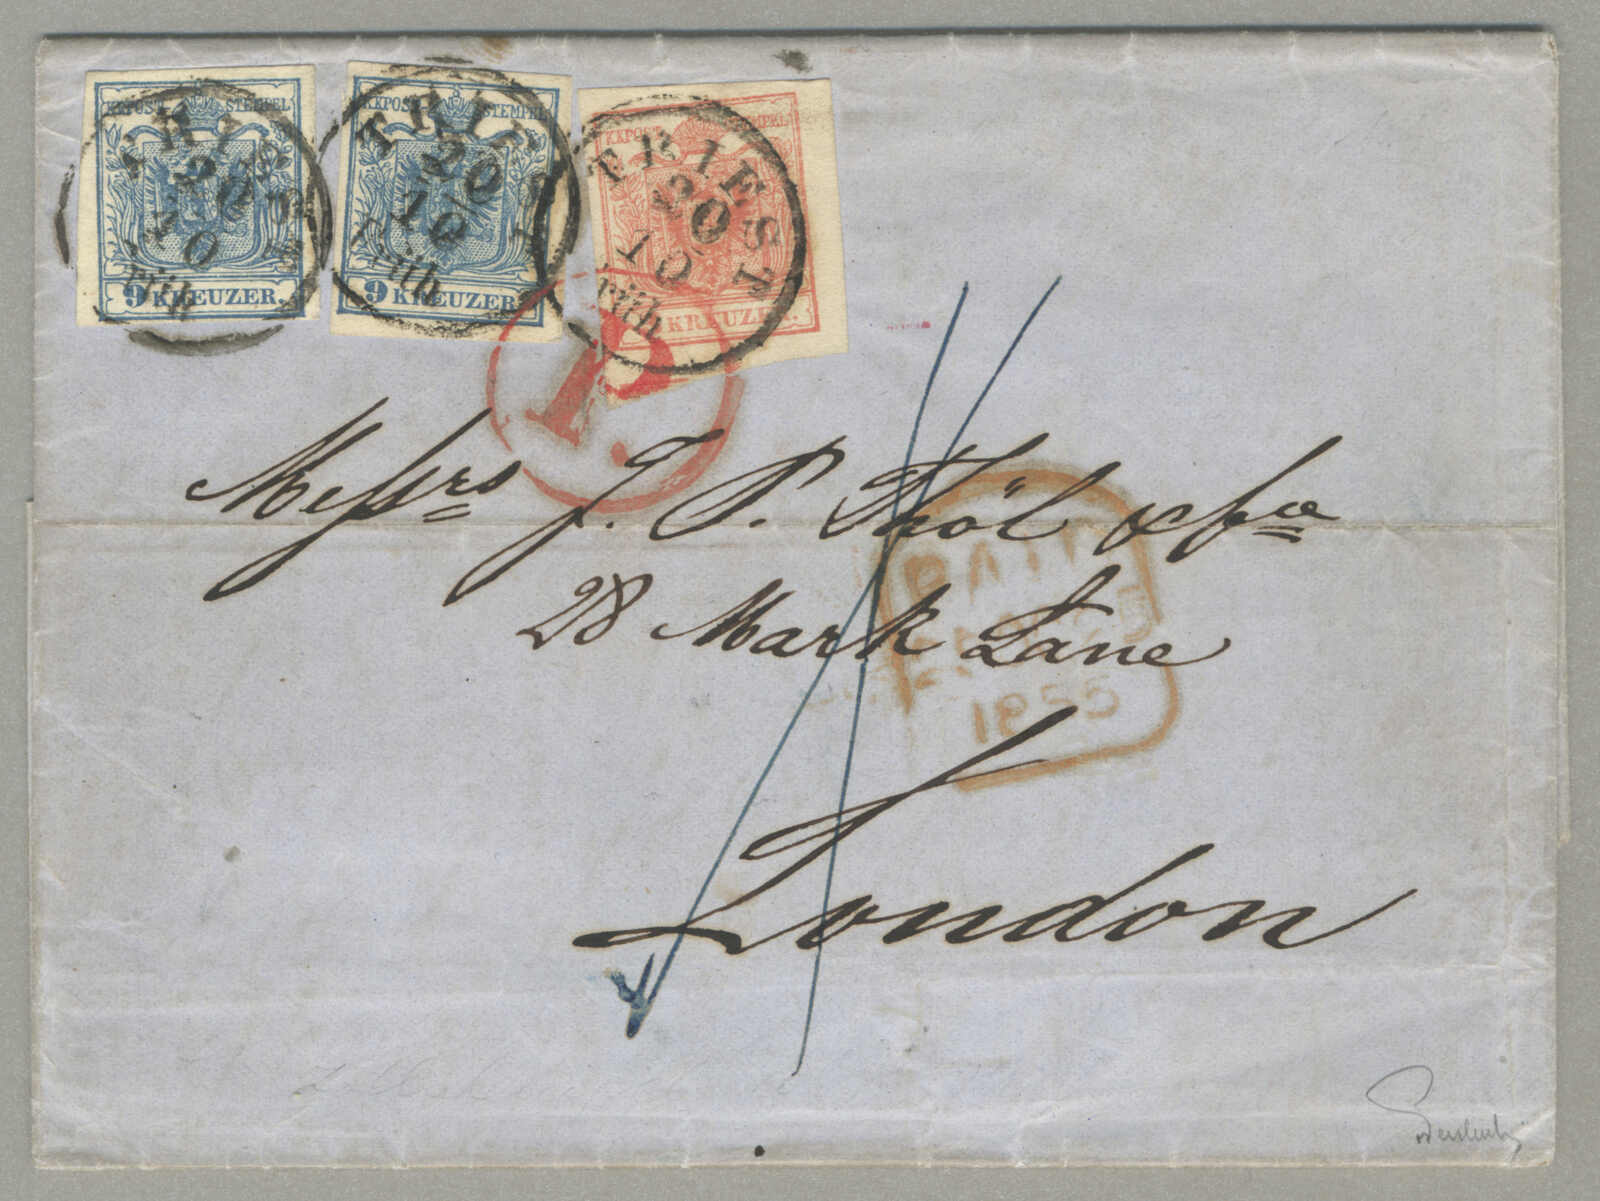 KKPOST STEMPEL KKPOST STEMPEL KKPOST STEMPEL
TRIEST 20 10 Früh
TRIEST 20 10 Früh
TRIEST 20 10 Früh
9 KREUZER. 9 KREUZER. KREUZER.
P.
Messrs J. P. Thöl & Co
28 Mark Lane
London
PAID
1855